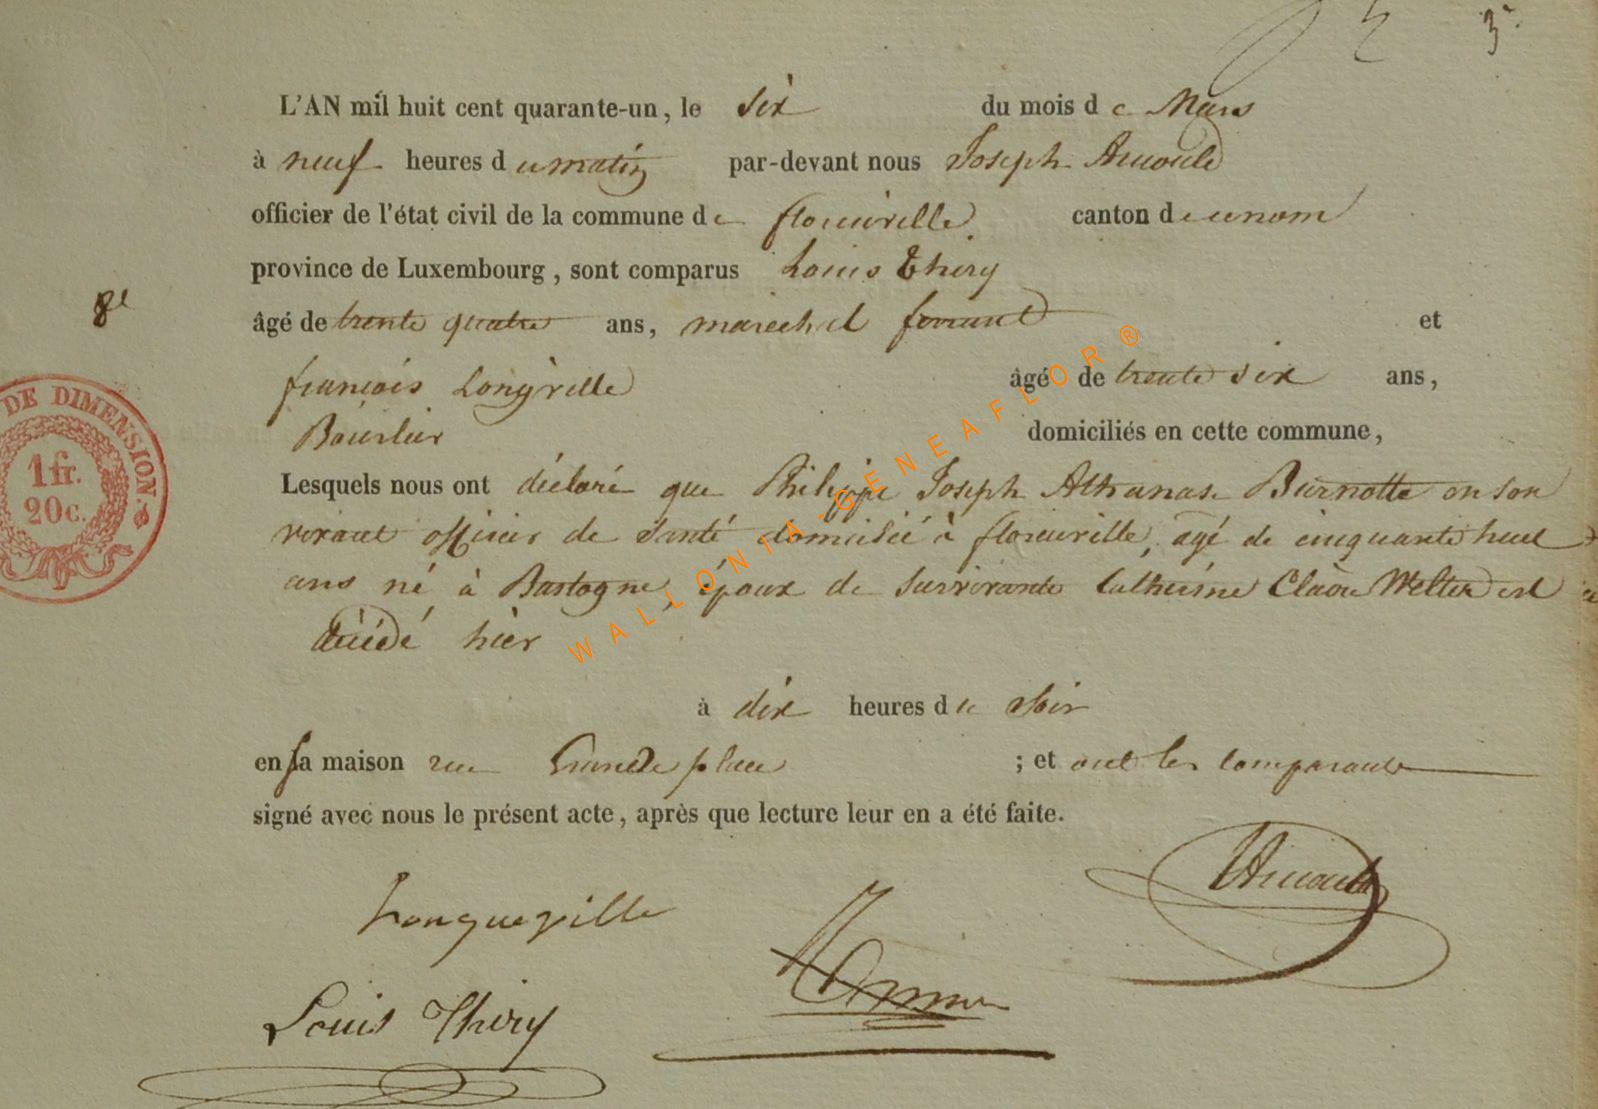 3
L'AN mil huit cent quarante-un, le six du mois de Mars
à neuf heures du matin par-devant nous Joseph Arnould
officier de l'état civil de la commune de florenville canton de
province de Luxembourg, sont comparus Louis Thiry
8e
âgé de trente quatre ans, marechal ferrant et
françois Longville âgé de trente six ans,
domiciliés en cette commune,
DE DIMENSION.
1 fr.
20 c.
Lesquels nous ont déclaré que Philippe Joseph Athanase Burnotte en son
vivant officier de santé domicilié à florenville, agé de cinquante huit
ans né à Bastogne, époux de survivante Catherine Claire Welter est
décédé hier
à dix heures du soir
en sa maison rue Grande place ; et ont les comparants
signé avec nous le présent acte, après que lecture leur en a été faite.
Arnould
Longueville
Louis Thiry
WALLONIA-GENEAFLOR®